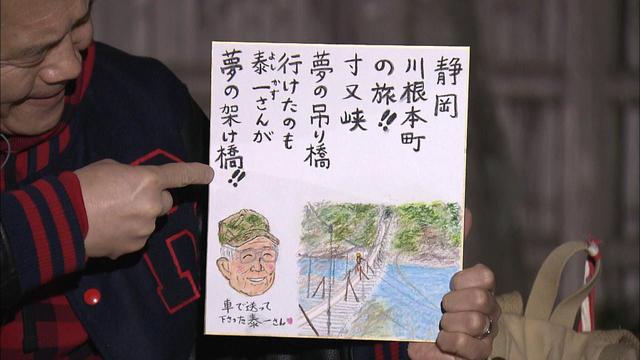 静岡
川根本町
の旅!!
寸又峡
夢の吊り橋
行けたのも
泰一さんが
よし かず
夢の架け橋!!
車で送って
下さった泰一さん